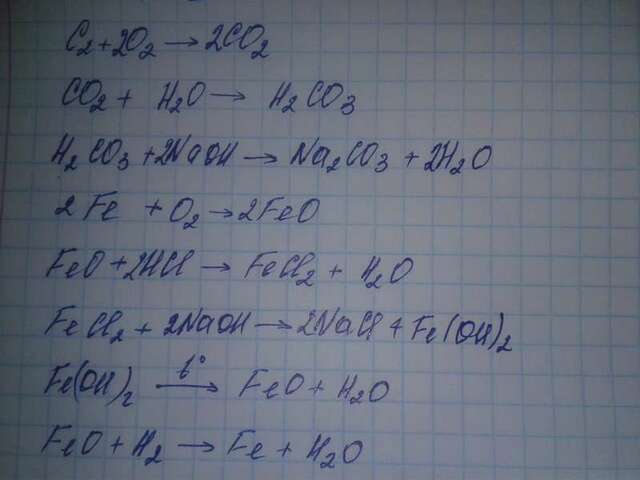 C₂ + 2O₂ → 2CO₂
CO₂ + H₂O → H₂CO₃
H₂CO₃ + 2NaOH → Na₂CO₃ + 2H₂O
2Fe + O₂ → 2FeO
FeO + 2HCl → FeCl₂ + H₂O
FeCl₂ + 2NaOH → 2NaCl + Fe(OH)₂
Fe(OH)₂ —t°→ FeO + H₂O
FeO + H₂ → Fe + H₂O